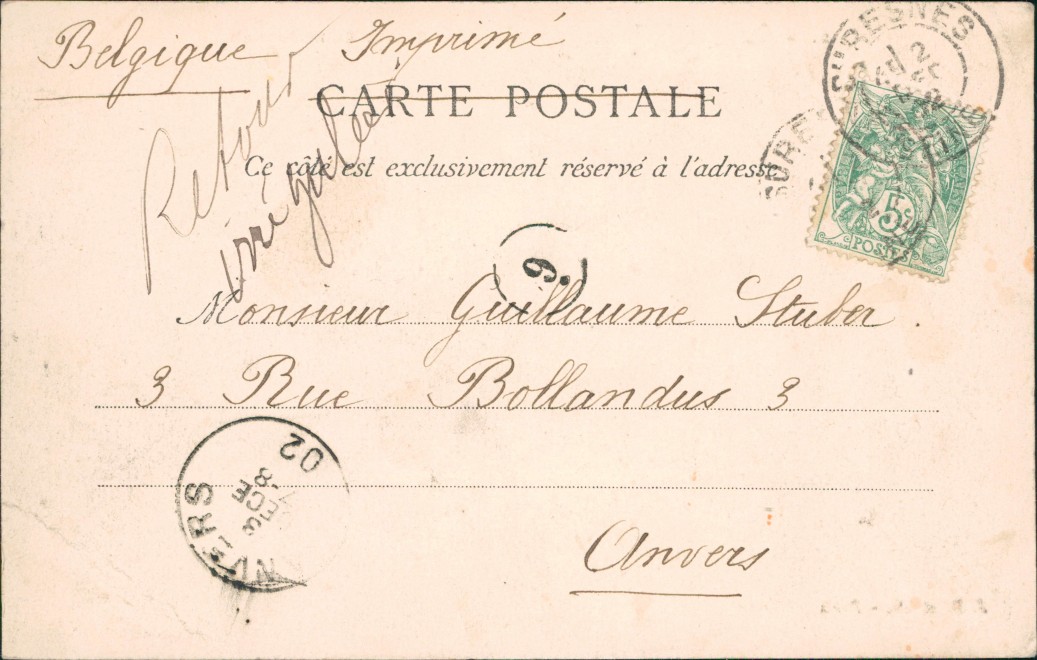 Belgique Imprimé
CARTE POSTALE
Ce côté est exclusivement réservé à l'adresse
Retour
irrégulier
SURESNES
SURE
5c
POSTES
6
Monsieur Guillaume Stuber.
3 Rue Bollandus 3
Anvers
NVERS
8
02